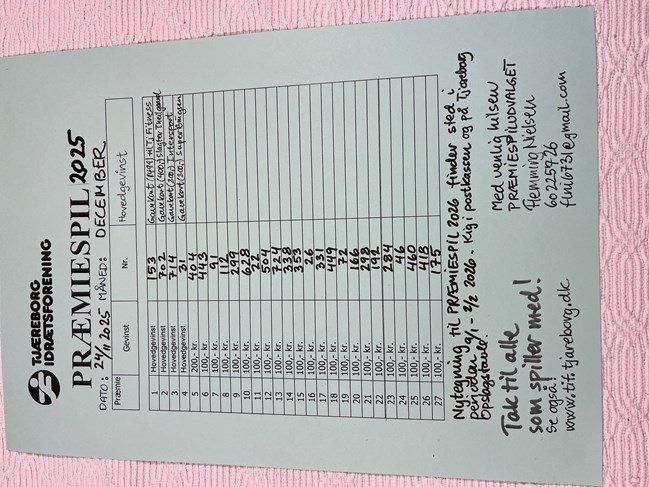 TJÆREBORG
IDRÆTSFORENING
PRÆMIESPIL 2025
DATO: 24/11 2025 MÅNED: DECEMBER
Præmie Gevinst Nr. Hovedgevinst
1 Hovedgevinst 153 Gavekort (499) til TI Fitness
2 Hovedgevinst 702 Gavekort (400,-) Slagter Theilgaard
3 Hovedgevinst 714 Gavekort (300,-) Intersport
4 Hovedgevinst 31 Gavekort (250,-) SuperBrugsen
5 200,- kr. 404
6 100,- kr. 443
7 100,- kr. 91
8 100,- kr. 112
9 100,- kr. 299
10 100,- kr. 628
11 100,- kr. 22
12 100,- kr. 504
13 100,- kr. 724
14 100,- kr. 338
15 100,- kr. 353
16 100,- kr. 26
17 100,- kr. 331
18 100,- kr. 449
19 100,- kr. 72
20 100,- kr. 166
21 100,- kr. 298
22 100,- kr. 192
23 100,- kr. 284
24 100,- kr. 46
25 100,- kr. 460
26 100,- kr. 418
27 100,- kr. 175
Nytegning til PRÆMIESPIL 2026 finder sted i
perioden 9/1 - 2/2 2026 - Kig i postkassen og på Tjæreborg
Opslagstavle!
Tak til alle
som spiller med!
Se også!
www.tif.tjareborg.dk
Med venlig hilsen
PRÆMIESPILUDVALGET
Flemming Nielsen
60225726
flni6731@gmail.com